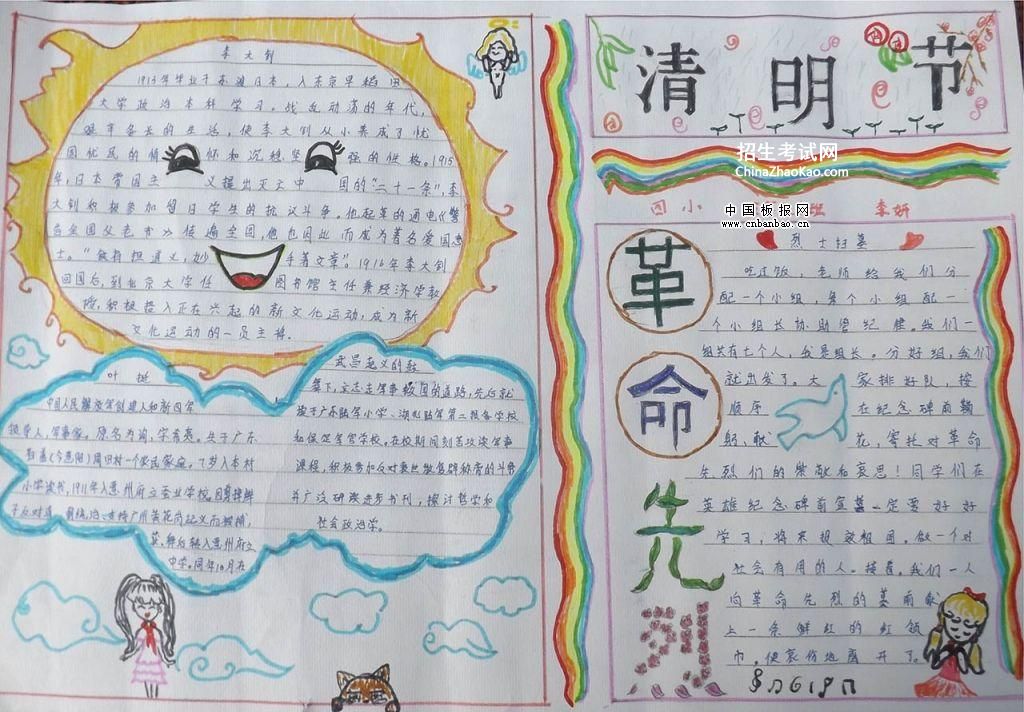 李大钊
1913年毕业于 渡日本，入东京早稻田
大学政治本科学习。战乱动荡的年代，
艰辛 的生活，使李大钊从小养成了忧
国忧民的情怀和沉稳坚强的性格。1915
年，日本帝国主义提出灭亡中国的“二十一条”，李
大钊积极参加留日学生的抗议斗争。他起草的通电《警
告全国父老书》传遍全国，他也因此而成为著名爱国志
士。“铁肩担道义，妙手著文章”。1916年李大钊
回国后，到北京大学任图书馆主任兼经济学教
授，积极投入正在兴起的新文化运动，成为新
文化运动的一员主将。
叶挺
中国人民解放军创建人和新四军
领导人，军事家。原名为询，字希夷。生于广东
归善（今惠阳）周田村一个农民家庭。7岁入本村
小学读书，1911年入惠州府立蚕业学校，因剪掉辫
子反对清 统治，支持广州黄花岗起义而被捕，
获释后转入惠州府立
中学。同年10月在
武昌起义的鼓
舞下，立志走军事救国的道路，先后就
读于广东陆军小学、湖北陆军第二预备学校
和保定军官学校。在校期间刻苦攻读军事
课程，积极参加反对袁世凯复辟称帝的斗争
并广泛研读进步书刊，探讨哲学和
社会政治学。
清明节
招生考试网
ChinaZhaoKao.com
中国板报网
www.cnbanbao.cn
回小 班 李妍
革命先烈
烈士扫墓
吃过饭，老师给我们分
配一个小组，每个小组配一
个小组长协助管纪律。我们一
组共有七个人，我是组长。分好组，我们
就出发了。大家排好队，按
顺序在纪念碑前鞠
躬，献花，寄托对革命
先烈们的崇敬和哀思！同学们在
英雄纪念碑前宣誓一定要好好
学习，将来报效祖国。做一个对
社会有用的人。接着，我们一人
向革命先烈的墓前献
上一条鲜红的红领
巾。便哀伤地离开了。